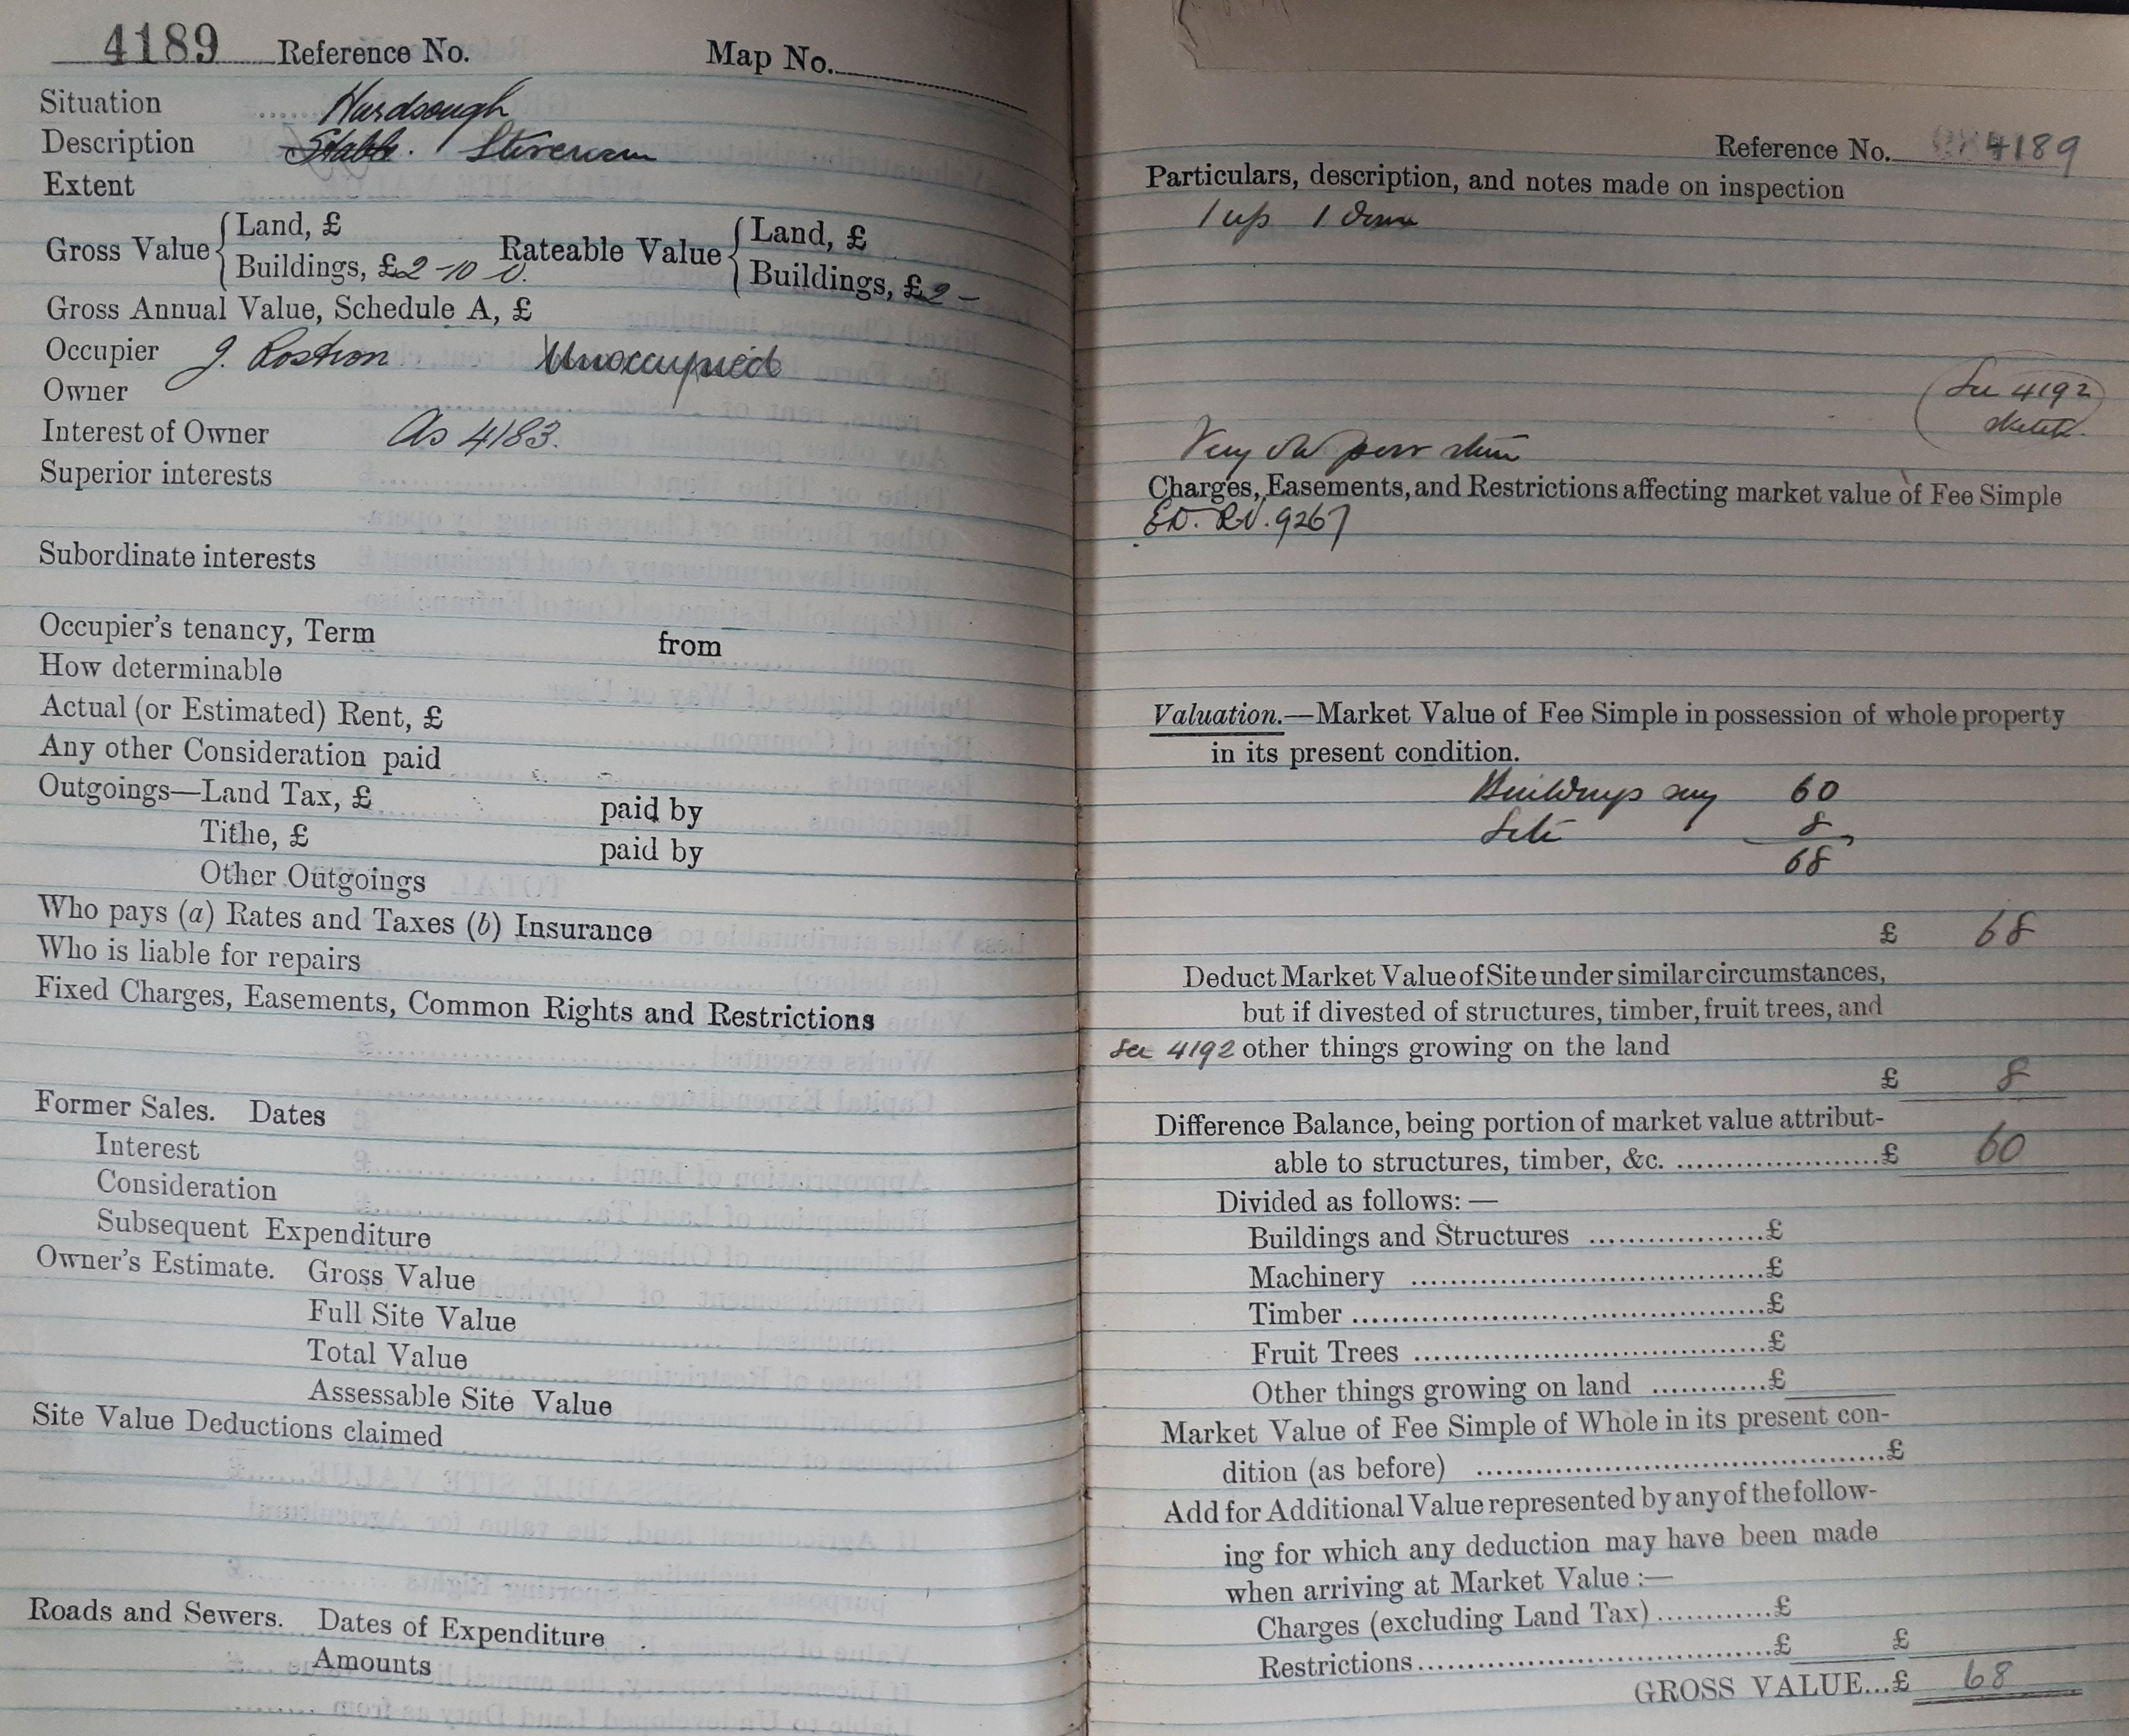 4189 Reference No. Map No.
Situation Hardsough
Description Stable. Storeroom
Extent
Gross Value { Land, £ Rateable Value { Land, £
Buildings, £2-10 0. Buildings, £2 –
Gross Annual Value, Schedule A, £
Occupier J. Rostron Unoccupied
Owner
Interest of Owner As 4183.
Superior interests
Subordinate interests
Occupier's tenancy, Term from
How determinable
Actual (or Estimated) Rent, £
Any other Consideration paid
Outgoings—Land Tax, £ paid by
Tithe, £ paid by
Other Outgoings
Who pays (a) Rates and Taxes (b) Insurance
Who is liable for repairs
Fixed Charges, Easements, Common Rights and Restrictions
Former Sales. Dates
Interest
Consideration
Subsequent Expenditure
Owner's Estimate. Gross Value
Full Site Value
Total Value
Assessable Site Value
Site Value Deductions claimed
Roads and Sewers. Dates of Expenditure
Amounts
Reference No. 4189
Particulars, description, and notes made on inspection
1 up 1 down
See 4192
sketch.
Very old poor
Charges, Easements, and Restrictions affecting market value of Fee Simple
ED. RN. 9267
Valuation.—Market Value of Fee Simple in possession of whole property
in its present condition.
Buildings say 60
Site 8
68
£ 68
Deduct Market Value of Site under similar circumstances,
but if divested of structures, timber, fruit trees, and
See 4192 other things growing on the land
£ 8
Difference Balance, being portion of market value attribut-
able to structures, timber, &c. ........................£ 60
Divided as follows: —
Buildings and Structures ..................£
Machinery ....................................£
Timber ..........................................£
Fruit Trees ....................................£
Other things growing on land ............£
Market Value of Fee Simple of Whole in its present con-
dition (as before) ..........................................£
Add for Additional Value represented by any of the follow-
ing for which any deduction may have been made
when arriving at Market Value :—
Charges (excluding Land Tax) ............£
Restrictions.....................................£ £
GROSS VALUE...£ 68